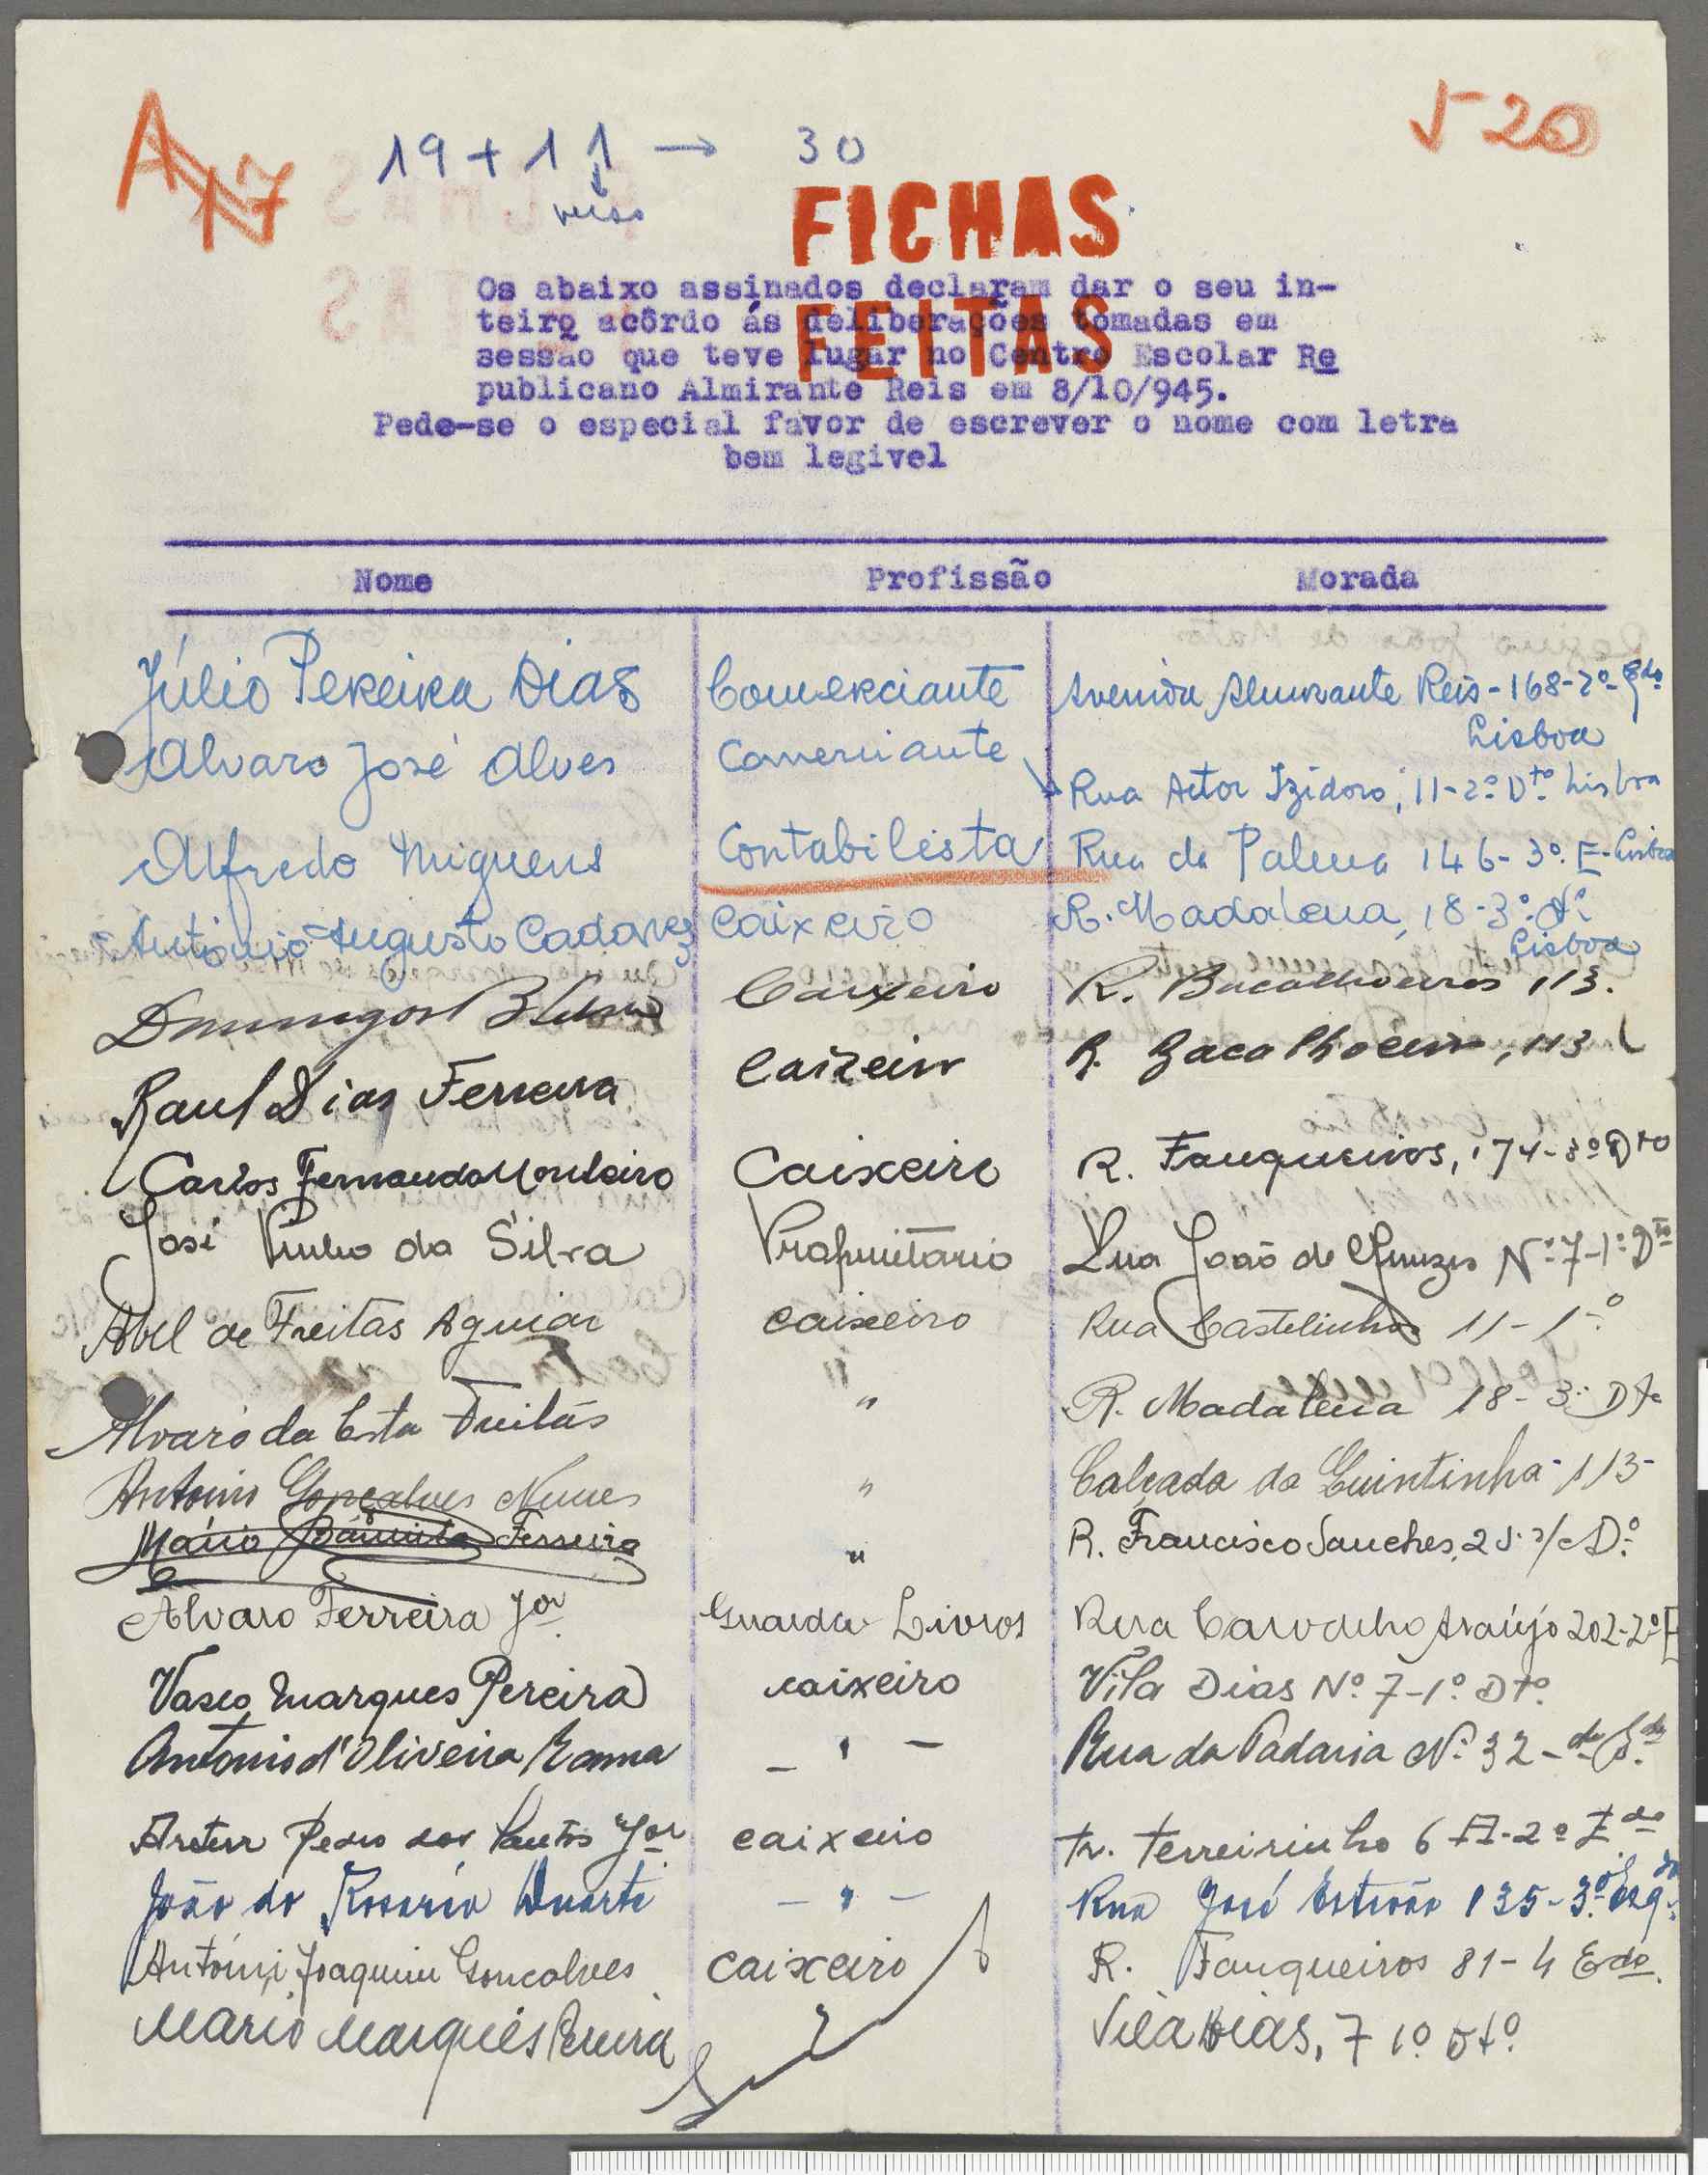 AN7
19 + 11 → 30
verso
V-20
FICHAS
FEITAS
Os abaixo assinados declaram dar o seu in-
teiro acôrdo ás deliberações tomadas em
sessão que teve lugar no Centro Escolar Re
publicano Almirante Reis em 8/10/945.
Pede-se o especial favor de escrever o nome com letra
bem legivel
Nome Profissão Morada
Júlio Pereira Dias Comerciante Avenida Almirante Reis-168-2º Edo
Lisboa
Alvaro José Alves Comerciante Rua Actor Izidoro, 11-2º Dto Lisboa
Alfredo Miguens Contabilista Rua da Palma 146-3º E-Lisboa
António Augusto Cadavez Caixeiro R. Madalena, 18-3º
Lisboa
Domingos Caixeiro R. Bacalhoeiros 113.
Raul Dias Ferreira Caixeiro R. Bacalhoeiros, 113
Carlos Fernando Monteiro Caixeiro R. Fanqueiros, 174-3º Dto
José Pinho da Silva Proprietario Rua João de Menezes Nº 7-1º Dto
Abel de Freitas Aguiar caixeiro Rua Castelinhos 11-1º
Alvaro da Costa Freitas " R. Madalena 18-3º Dto
Antonio Gonçalves Nunes " Calçada da Quintinha-113-
Mário Ferreira " R. Francisco Sanches, 25 r/c Dº
Alvaro Ferreira Jor Guarda-Livros Rua Carvalho Araújo 202-2º E
Vasco Marques Pereira caixeiro Vila Dias Nº 7-1º Dto
Antonio d'Oliveira - " - Rua da Padaria Nº 32-
Artur Pedro dos Santos Jor caixeiro Tr. Terreirinho 6 A-2º Edo
João do Rosário Duarte - " - Rua José Estevão 135-3º Esq.
António Joaquim Goncalves caixeiro R. Fanqueiros 81-4 Edo
Mario Marques Pereira Vila Dias, 7 1º Dtº